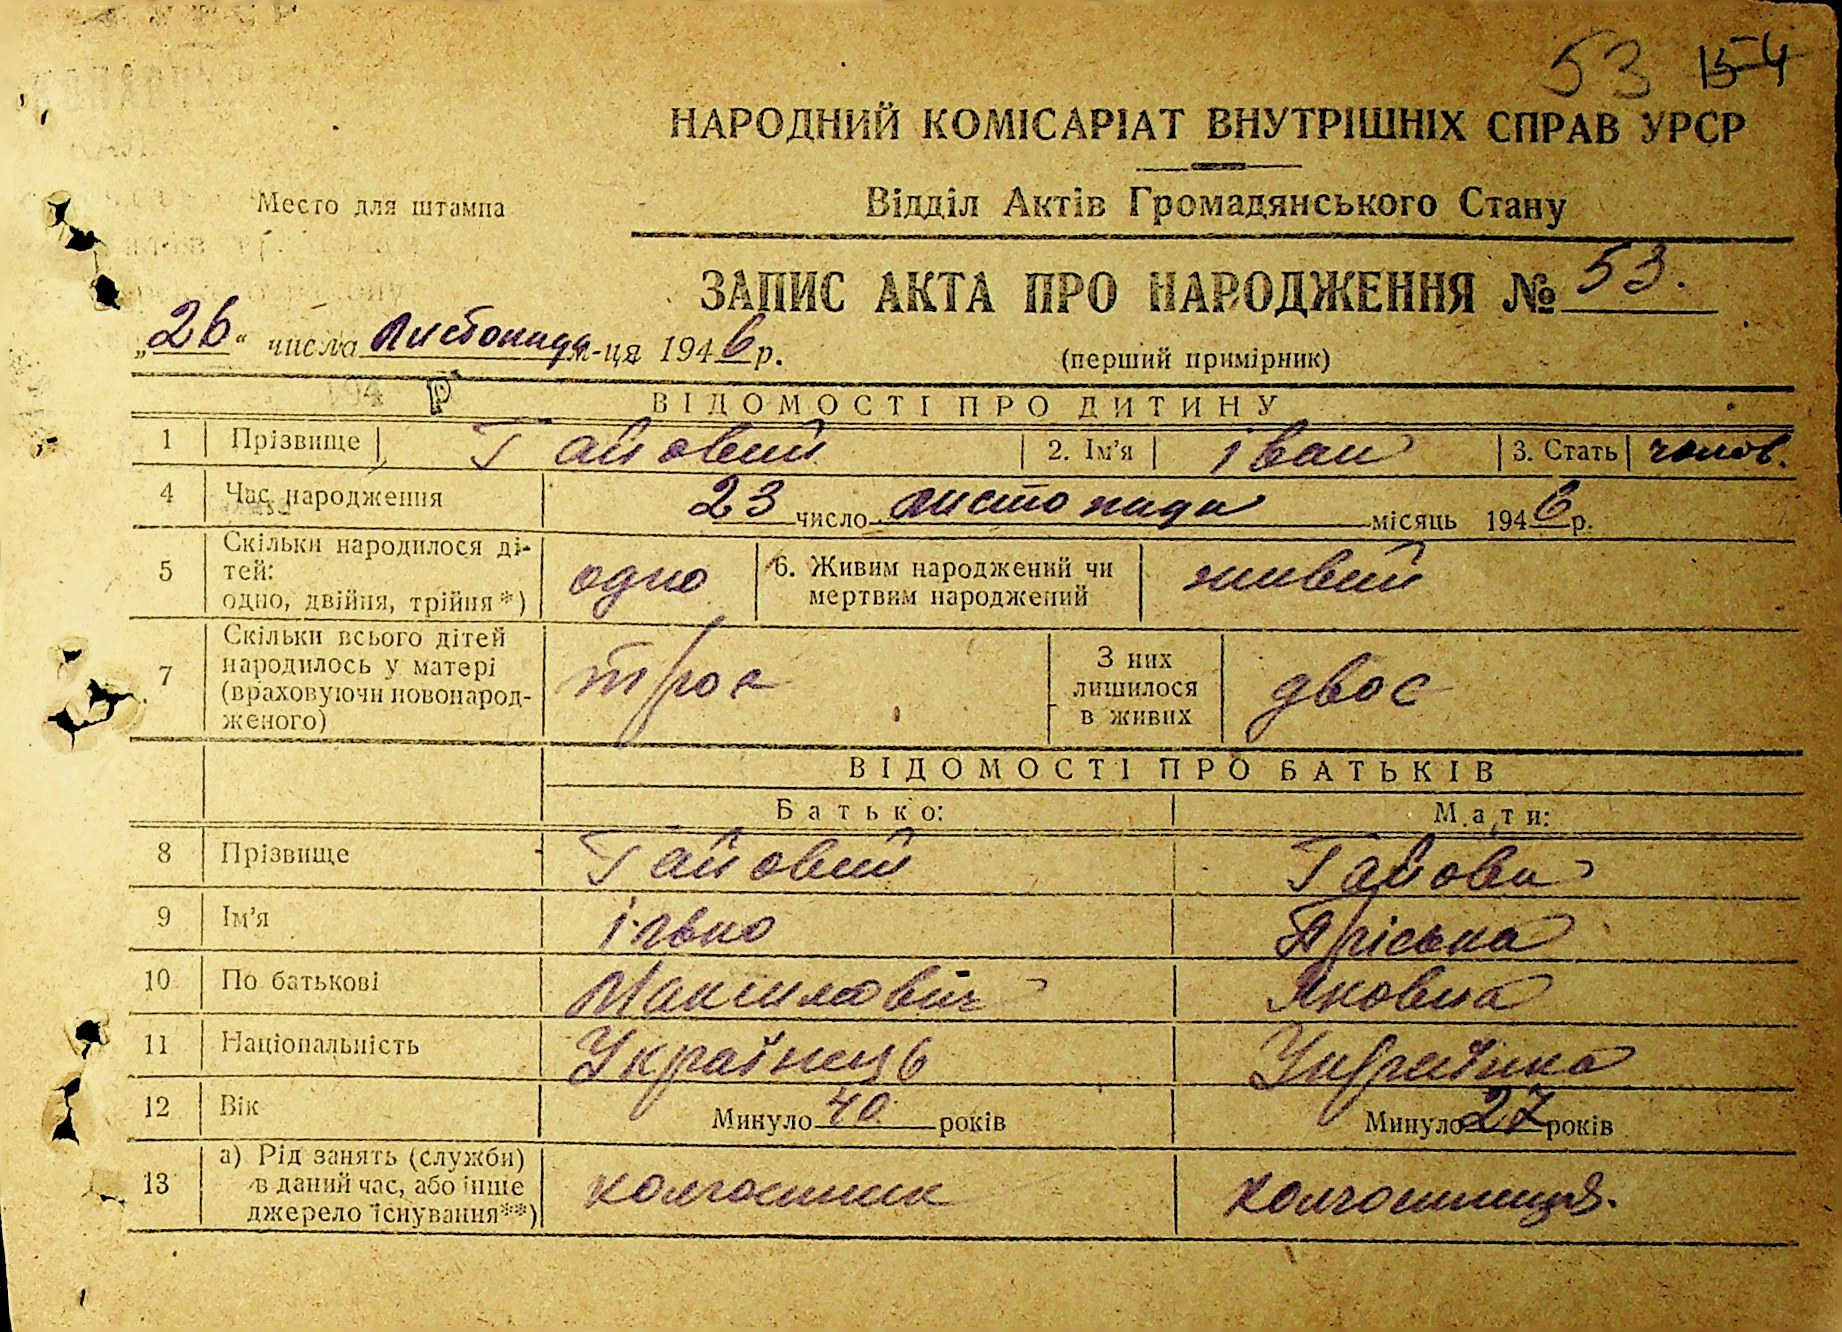 53 154
НАРОДНИЙ КОМІСАРІАТ ВНУТРІШНІХ СПРАВ УРСР
Место для штампа
Відділ Актів Громадянського Стану
ЗАПИС АКТА ПРО НАРОДЖЕННЯ № 53.
„26“ числа листопада м-ця 1946 р.
(перший примірник)
ВІДОМОСТІ ПРО ДИТИНУ
1 Прізвище Гайовий 2. Ім'я іван 3. Стать чолов.
4 Час народження 23 число листопада місяць 1946 р.
5 Скільки народилося ді-
тей:
одно, двійня, трійня*) одно 6. Живим народжений чи
мертвим народжений живий
7 Скільки всього дітей
народилось у матері
(враховуючи новонарод-
женого) троє З них
лишилося
в живих двоє
ВІДОМОСТІ ПРО БАТЬКІВ
Батько: Мати:
8 Прізвище Гайовий Гайова
9 Ім'я Пріська
10 По батькові Максимович Яковна
11 Національність Українець Українка
12 Вік Минуло 40 років Минуло 27 років
13 а) Рід занять (служби)
в даний час, або інше
джерело існування**) колгоспник колгоспниця.